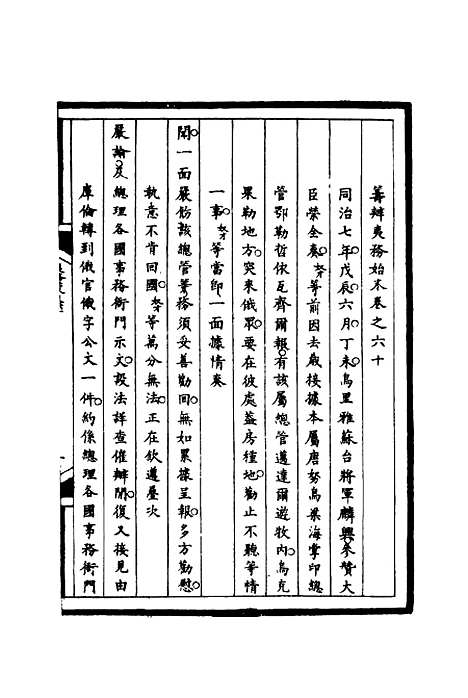 籌辦夷務始末卷之六十
同治七年戊辰六月丁未烏里雅蘇台將軍麟興參贊大
臣榮全奏奴才等前因去歲接據本屬唐努烏梁海掌印總
管鄂勒哲依瓦齊爾報有該屬總管邁達爾遊牧內烏克
果勒地方突來俄眾要在彼處蓋房種地勸止不聽等情
一事奴才等當即一面據情奏
聞一面嚴飭該總管等務須妥善勸回無如累據呈報多方勸慰
執意不肯回國奴才等萬分無法正在欽遵疊次
嚴諭及總理各國事務衙門示文設法詳查催辦間復又接見由
庫倫轉到俄官俄字公文一件約係總理各國事務衙門